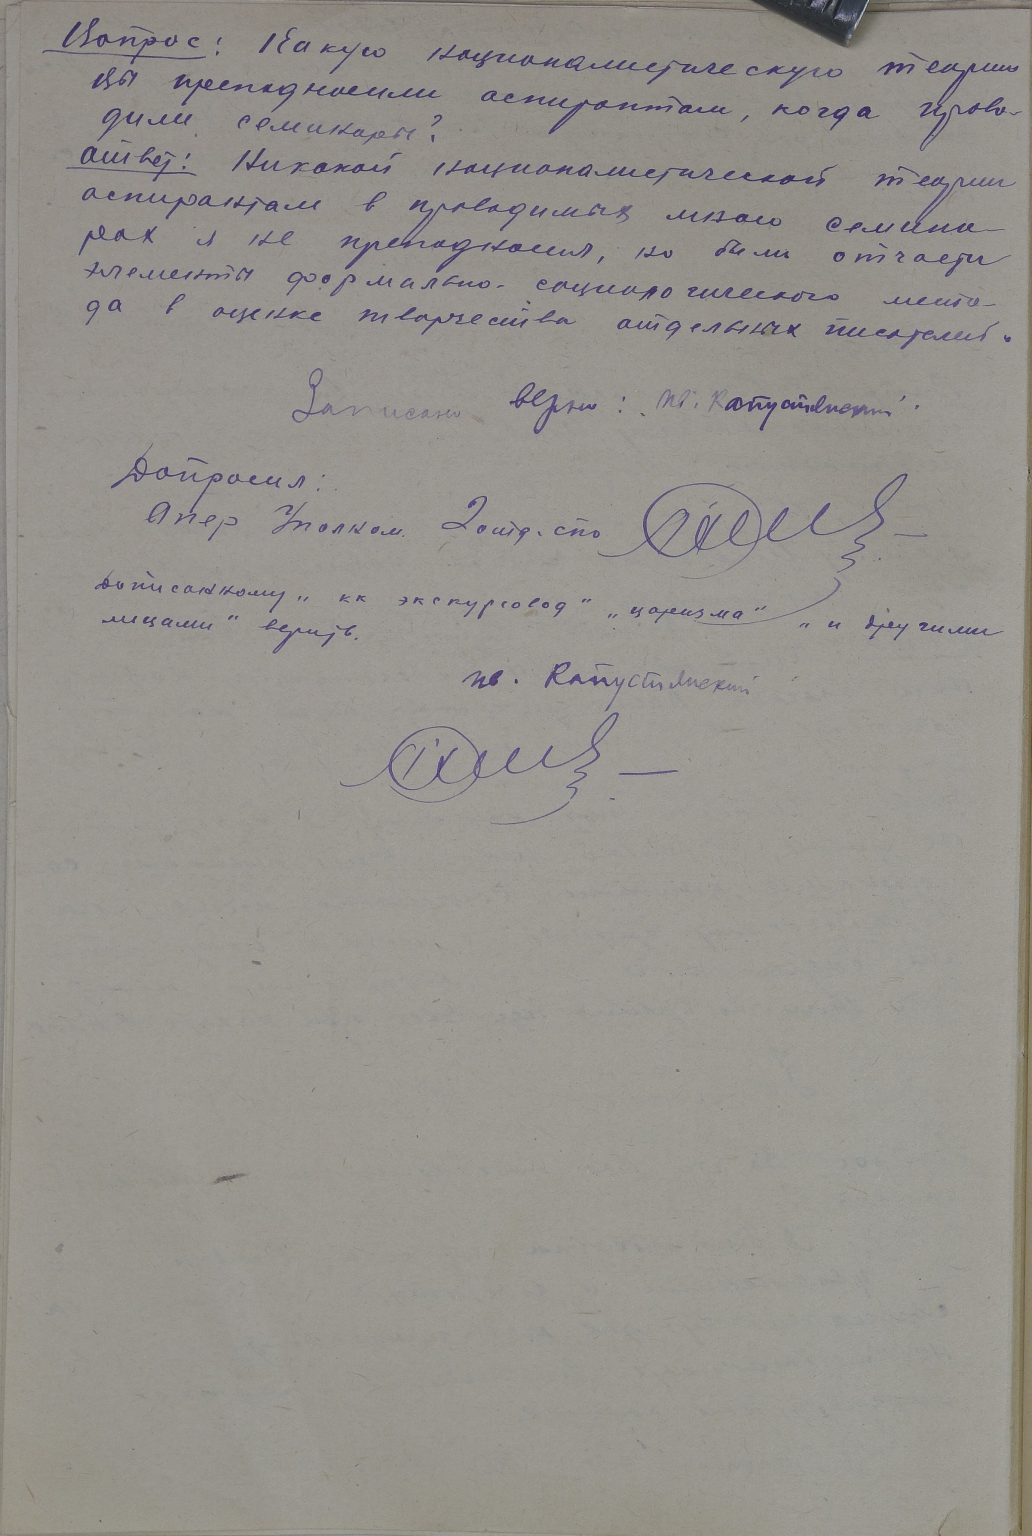 Вопрос: Какую националистическую теорию
вы преподносили аспирантам, когда прово-
дили семинары?
Ответ: Никакой националистической теории
аспирантам в проводимых мною семина-
рах я не преподносил, но были отчасти
элементы формально-социологического мето-
да в оценке творчества отдельных писателей.
Записано верно: Ив. Капустянский.
Допросил:
Опер Уполном. 2 отд. СПО
Дописанному „кк экскурсовод" „царизма" „и другими
лицами" верить.
Ив. Капустянский